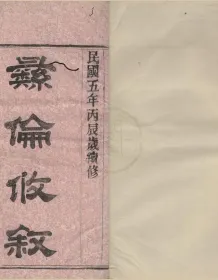 民國五年丙辰歲續修
彝倫攸叙